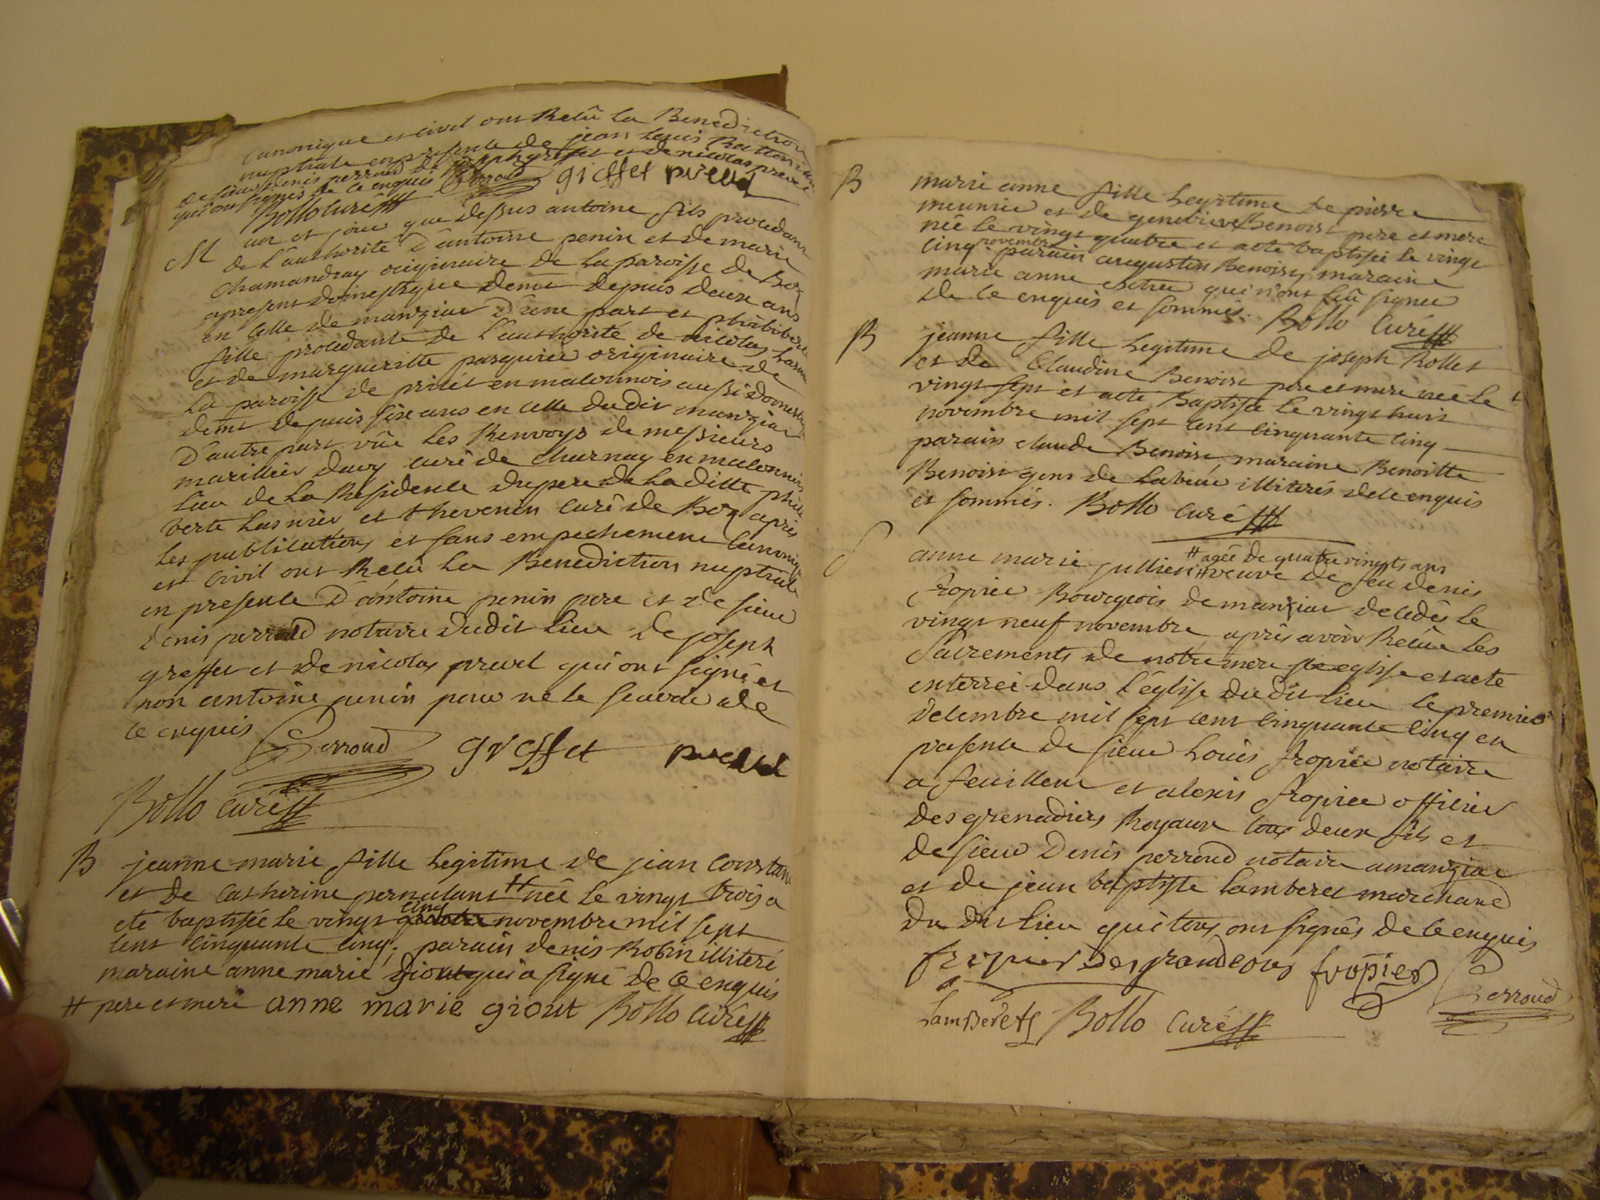 canonique et civil ont Recû la Benediction
nuptiale en presence de jean louis
de sieur denis perroud de joseph greffet et de nicolas prevel
qui ont signés de ce enquis Perroud greffet prevel
Bollo curé
M un et jour que dessus antoine fils procedant
de l'authorité d'antoine penin et de marie
chamandray originaire de la paroisse de Boz
apresent domestique demt depuis deux ans
en celle de manziac d'une part et philiberte
fille procedante de l'authorité de nicolas
et de margueritte pasquiée originaire de
la paroisse de prisset en maconnois aussi domestique
demt depuis six ans en celle dudit manziac
D'autre part vûe les Renvoys de messieurs
marillier davy curé de charnay en maconnois
lieu de la Residence du pere de la ditte phili
berte lasnier et thevenin curé de Boz après
les publications et sans empechement canonique
et civil ont Recû la Benediction nuptiale
en presence D'antoine penin pere et de sieur
denis perroud notaire dudit lieu de joseph
greffet et de nicolas prevel qui ont signé et
non antoine penin pour ne le scavoir de
ce enquis Perroud greffet prevel
Bollo curé
B jeanne marie fille legitime de jean
et de catherine # née le vingt trois a
eté baptisée le vingt cinq novembre mil sept
cent cinquante cinq. parain denis Robin illiteré
maraine anne marie giout qui a signé de ce enquis
# pere et mere anne marie giout Bollo curé
B marie anne fille legitime de pierre
meunier et de genevieve Benoist pere et mere
née le vingt quatre et eté baptisée le vingt
cinq novembre parain augustin Benoist, maraine
marie anne qui n'ont sçû signer
de ce enquis et sommés. Bollo Curé
B jeanne fille legitime de joseph Rollet
et de Claudine Benoist pere et mere née le
vingt sept et eté Baptisée le vingt huit
novembre mil sept cent cinquante cinq
parain claude Benoist, maraine Benoitte
Benoist gens de labeur illiterés de ce enquis
et sommés. Bollo curé
anne marie jullien # agée de quatre vingts ans
# veuve de feu denis
fropier Bourgeois de manziac decedée le
vingt neuf novembre après avoir Recûe les
sacrements de notre mere ste eglise et a eté
enterrée dans l'église du dit lieu le premier
decembre mil sept cent cinquante cinq en
presence de sieur Louis fropier notaire
a feuillent et alexis fropier officier
des grenadiers Royaux tous deux fils et
de sieur Denis perroud notaire a manziac
et de jean baptiste lamberet marchand
du dit lieu qui tous ont signés de ce enquis
fropier Desgrandcours fropier Perroud
Lamberet Bollo curé